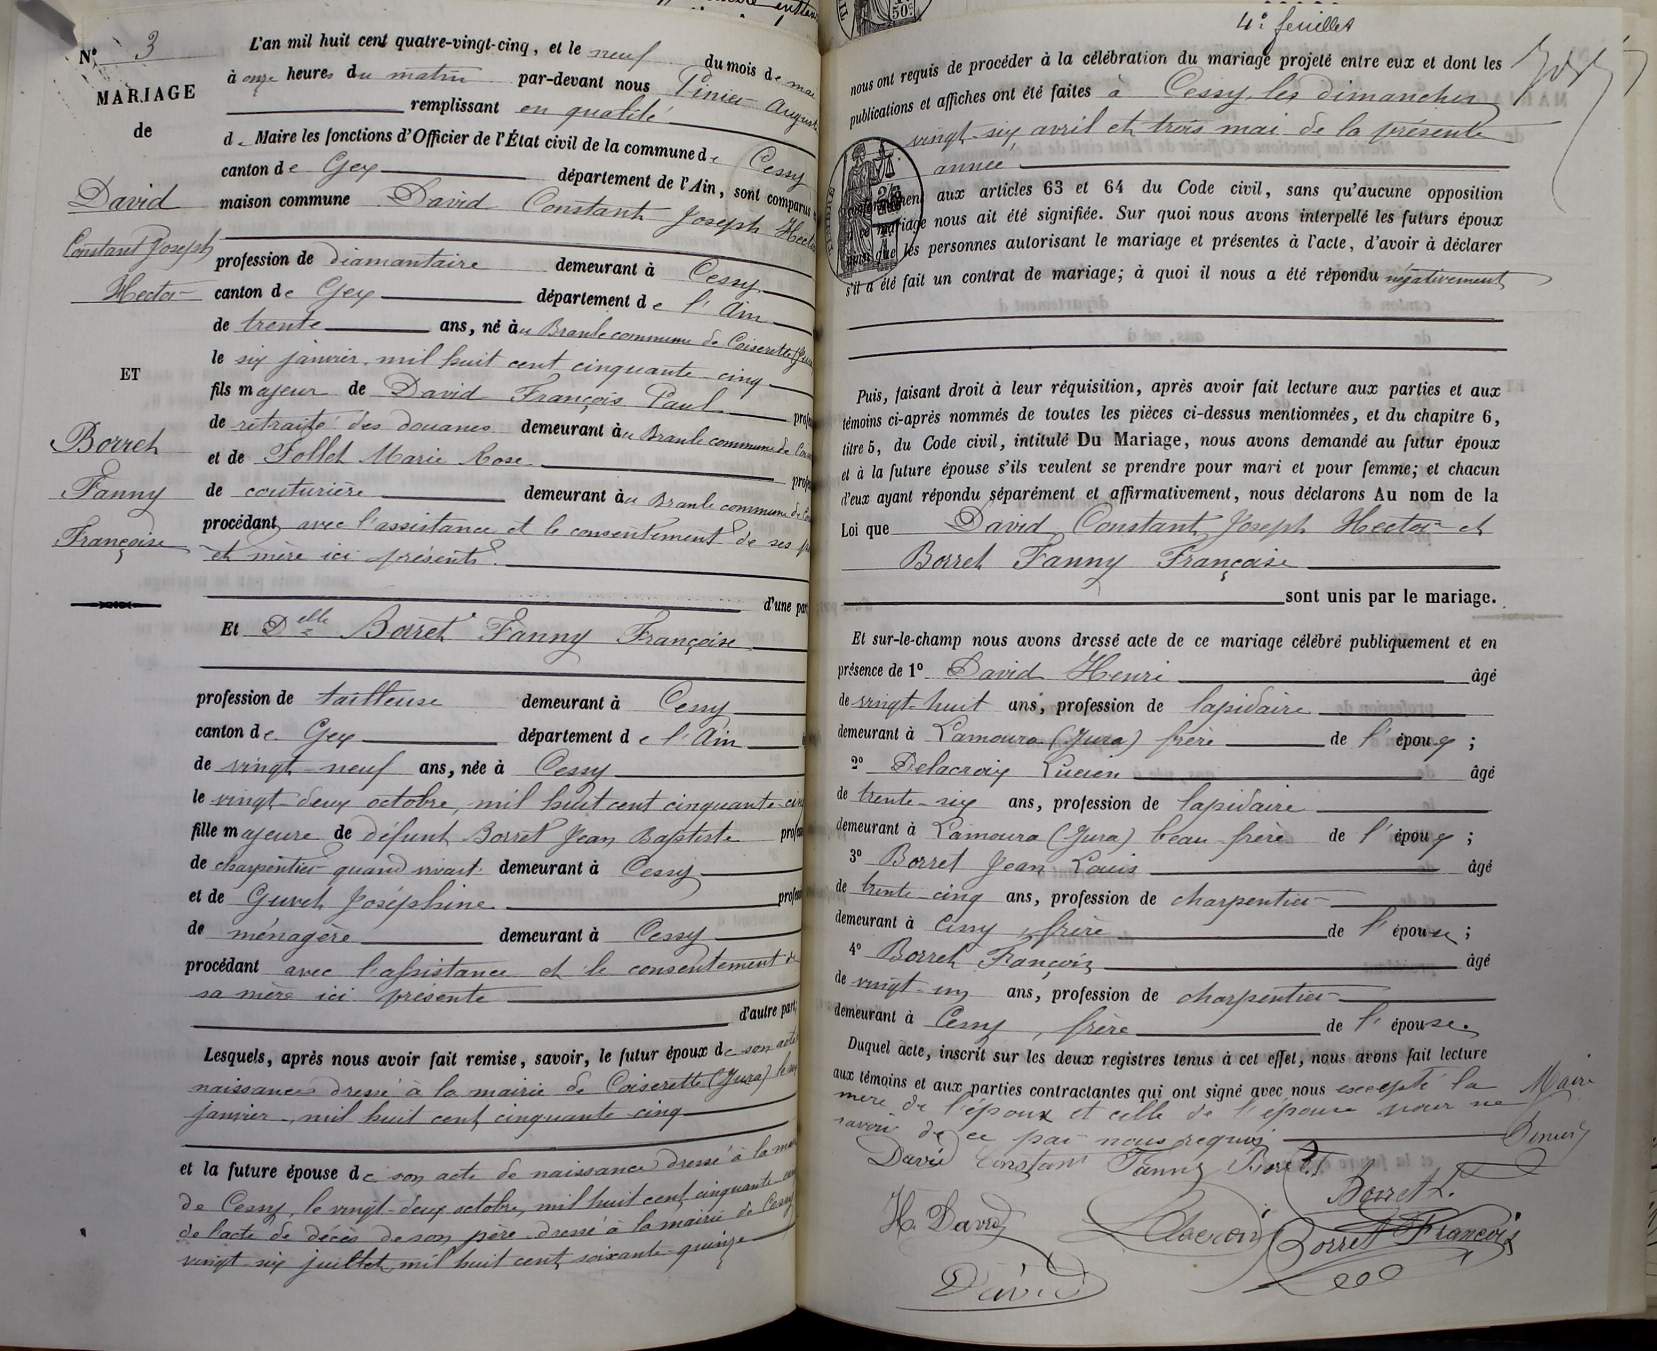 N° 3
MARIAGE
de
David
Constant Joseph
Hector
ET
Borret
Fanny
Françoise
L'an mil huit cent quatre-vingt-cinq, et le neuf du mois de mai
à onze heures du matin par-devant nous Pinier August
remplissant en qualité
de Maire les fonctions d'Officier de l'État civil de la commune de Cessy
canton de Gex département de l'Ain, sont comparus
maison commune David Constant Joseph Hector
profession de diamantaire demeurant à Cessy
canton de Gex département de l'Ain
de trente ans, né à au Branle commune de Coiserette (Jura
le six janvier mil huit cent cinquante-cinq
fils majeur de David François Paul
de retraité des douanes demeurant à au Branle commune de
et de Follet Marie Rose
de couturière demeurant à au Branle commune de
procédant avec l'assistance et le consentement de ses
et mère ici présents.
d'une par
Et Delle Borret Fanny Françoise
profession de tailleuse demeurant à Cessy
canton de Gex département de l'Ain
de vingt-neuf ans, née à Cessy
le vingt-deux octobre, mil huit cent cinquante-cin
fille majeure de défunt Borret Jean Baptiste
de charpentier quand vivait demeurant à Cessy
et de Guvet Joséphine
de ménagère demeurant à Cessy
procédant avec l'assistance et le consentement de
sa mère ici présente
d'autre part;
Lesquels, après nous avoir fait remise, savoir, le futur époux de son acte
naissance dressé à la mairie de Coiserette (Jura) le six
janvier, mil huit cent cinquante-cinq
et la future épouse de son acte de naissance dressé à la mai
de Cessy, le vingt-deux octobre, mil huit cent cinquante-
de l'acte de décès de son père dressé à la mairie de Cessy
vingt-six juillet, mil huit cent soixante-quinze
50c
4e feuillet
nous ont requis de procéder à la célébration du mariage projeté entre eux et dont les
publications et affiches ont été faites à Cessy les dimanches
vingt-six avril et trois mai de la présente
année
conformément aux articles 63 et 64 du Code civil, sans qu'aucune opposition
à ce mariage nous ait été signifiée. Sur quoi nous avons interpellé les futurs époux
ainsi que les personnes autorisant le mariage et présentes à l'acte, d'avoir à déclarer
s'il a été fait un contrat de mariage; à quoi il nous a été répondu négativement
Puis, faisant droit à leur réquisition, après avoir fait lecture aux parties et aux
témoins ci-après nommés de toutes les pièces ci-dessus mentionnées, et du chapitre 6,
titre 5, du Code civil, intitulé Du Mariage, nous avons demandé au futur époux
et à la future épouse s'ils veulent se prendre pour mari et pour femme; et chacun
d'eux ayant répondu séparément et affirmativement, nous déclarons Au nom de la
Loi que David Constant Joseph Hector et
Borret Fanny Françoise
sont unis par le mariage.
Et sur-le-champ nous avons dressé acte de ce mariage célébré publiquement et en
présence de 1° David Henri âgé
de vingt-huit ans, profession de lapidaire
demeurant à Lamoura (Jura) frère de l'époux;
2° Delacroix Lucien âgé
de trente-six ans, profession de lapidaire
demeurant à Lamoura (Jura) beau-frère de l'époux;
3° Borret Jean Louis âgé
de trente-cinq ans, profession de charpentier
demeurant à Cessy, frère de l'épouse;
4° Borret François âgé
de vingt-un ans, profession de charpentier
demeurant à Cessy, frère de l'épouse.
Duquel acte, inscrit sur les deux registres tenus à cet effet, nous avons fait lecture
aux témoins et aux parties contractantes qui ont signé avec nous excepté la
mère de l'époux et celle de l'épouse pour ne
savoir de ce par nous requis.
Maire
David Constant Fanny Borret
Borret L.
H. David Delacroix Borret François
David